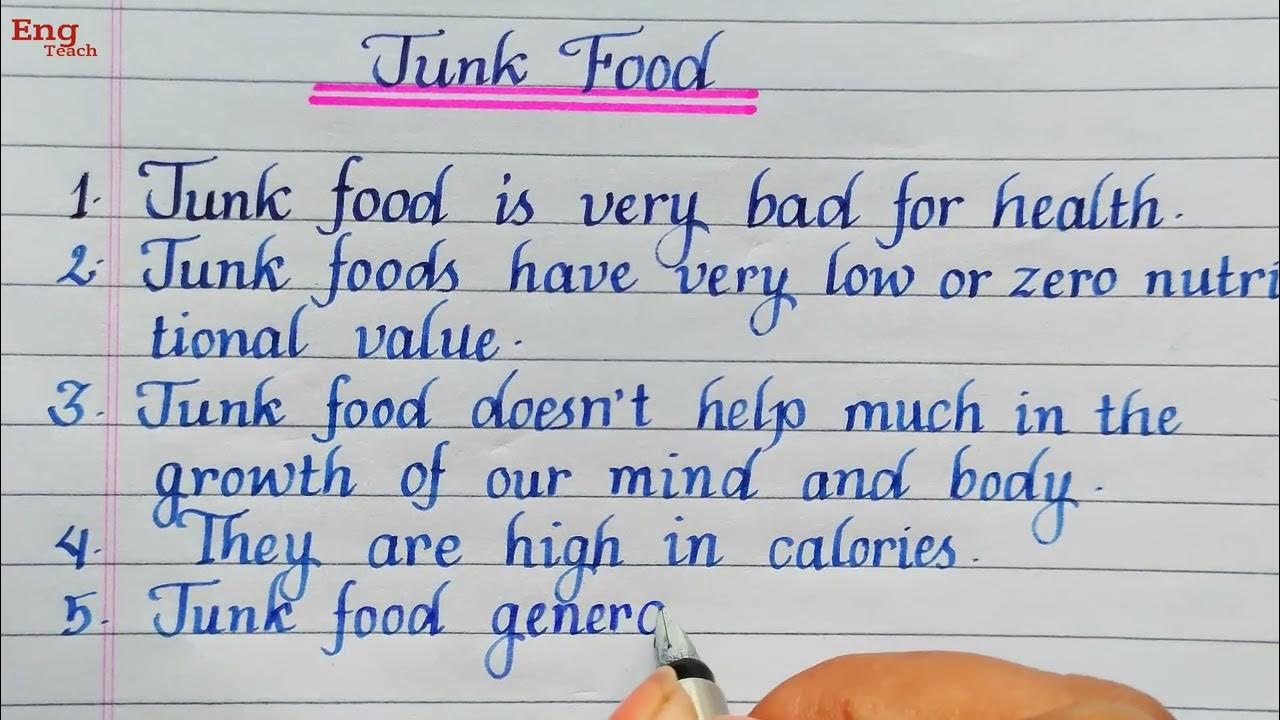 Eng
Teach
Junk Food
1. Junk food is very bad for health.
2. Junk foods have very low or zero nutri
tional value.
3. Junk food doesn't help much in the
growth of our mind and body.
4. They are high in calories.
5. Junk food genera